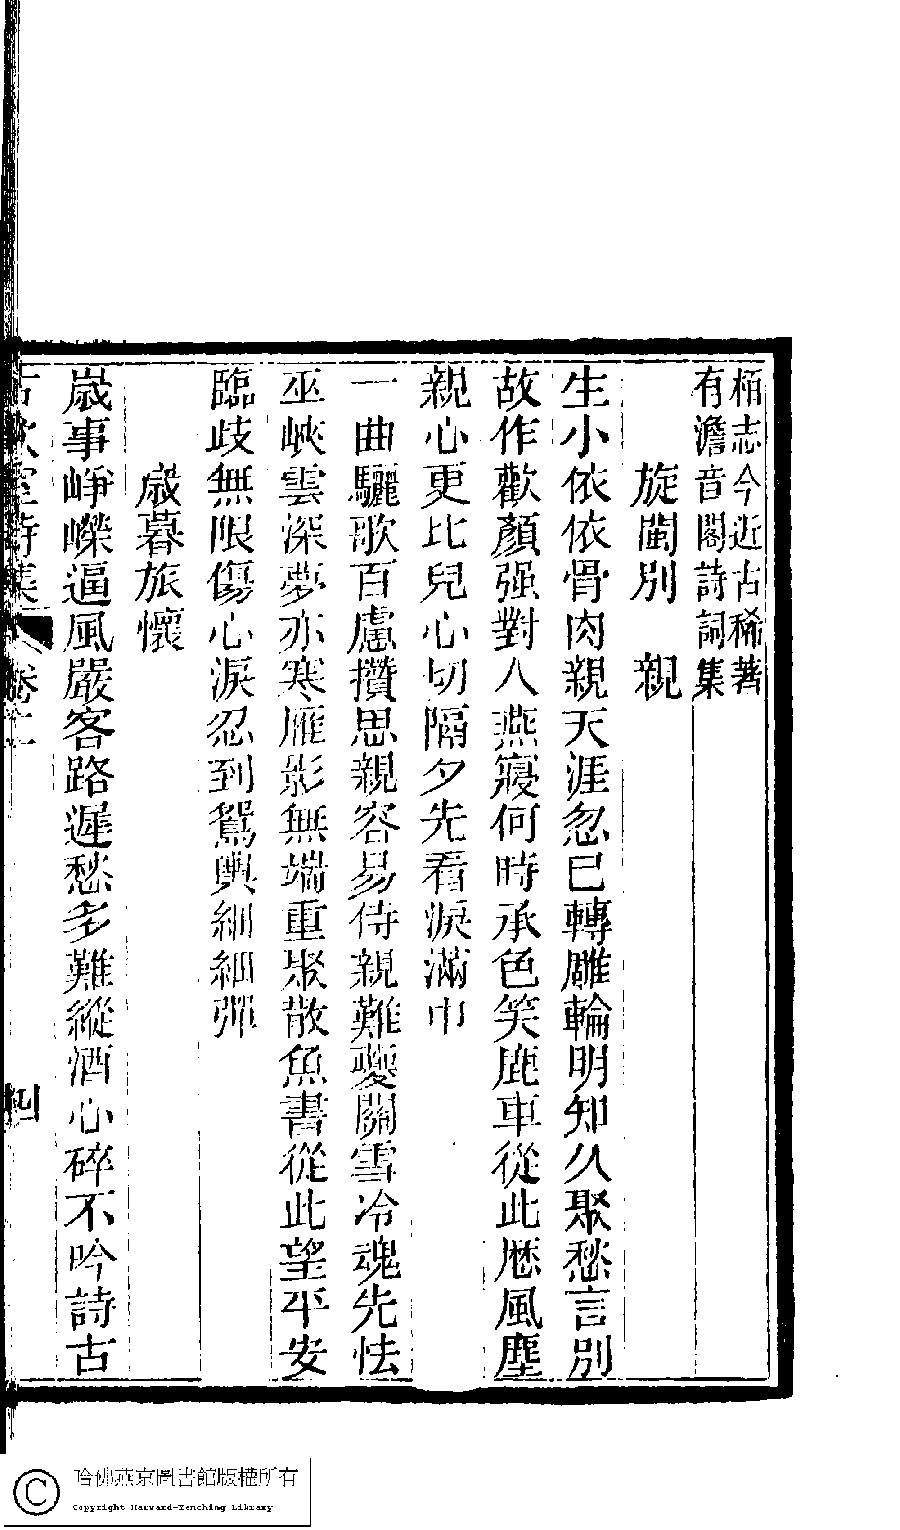 栢志今近古稀著
有澹音閣詩詞集
旋閩別親
生小依依骨肉親天涯忽已轉雕輪明知久聚愁言別
故作歡顏强對人燕寢何時承色笑鹿車從此歷風塵
親心更比兒心切隔夕先看淚滿巾
一曲驪歌百慮攢思親容易侍親難夔關雪冷魂先怯
巫峽雲深夢亦寒雁影無端重聚散魚書從此望平安
臨歧無限傷心淚忍到鴛輿細細彈
歲暮旅懷
歲事崢嶸逼風嚴客路遲愁多難縱酒心碎不吟詩古
室詩集
卷二
四
哈佛燕京圖書館版權所有
Copyright Harvard-Yenching Library